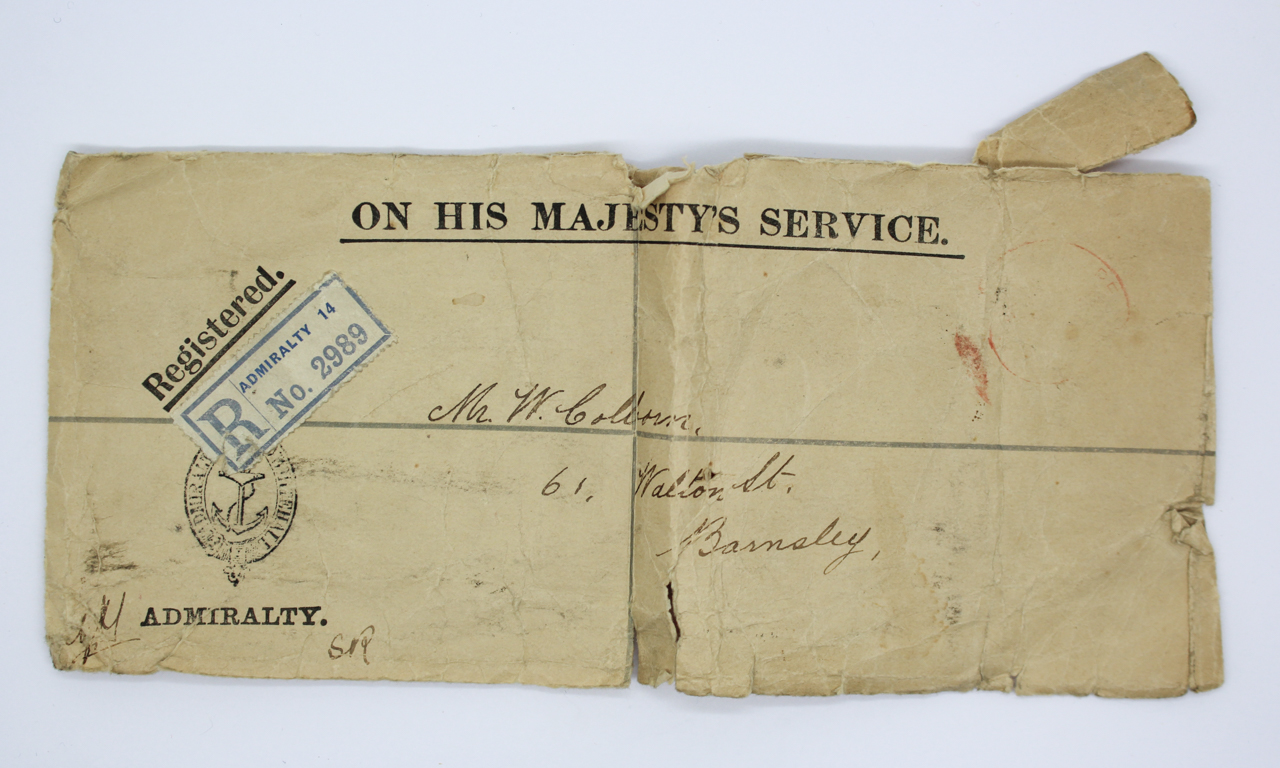 ON HIS MAJESTY'S SERVICE.
Registered.
R ADMIRALTY 14
No. 2989
Mr. W. Colbourn,
61, Walton St.
Barnsley,
ADMIRALTY WHITEHALL
ADMIRALTY.
SR